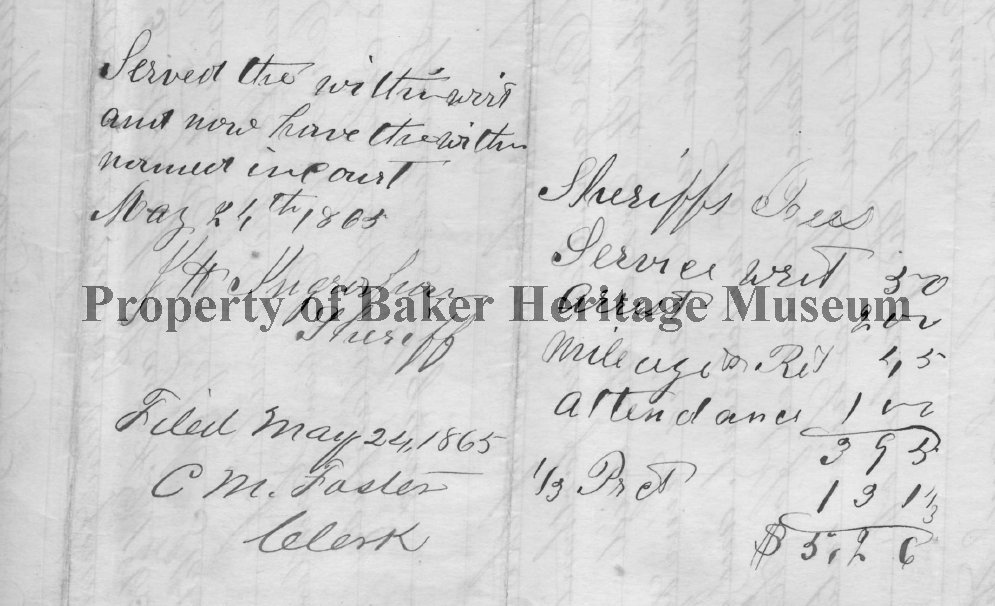 Served the within wirt
and now have the within
named in Court
May 24th 1865
J H
Sheriff
Filed May 24, 1865
C M. Foster
Clerk
Sheriffs Fees
Service writ 50
Arrest 2 00
Mileage & Ret 45
Attendance 1 00
3 95
1/3 Pr ct 1 31 1/3
$ 5.26
Property of Baker Heritage Museum